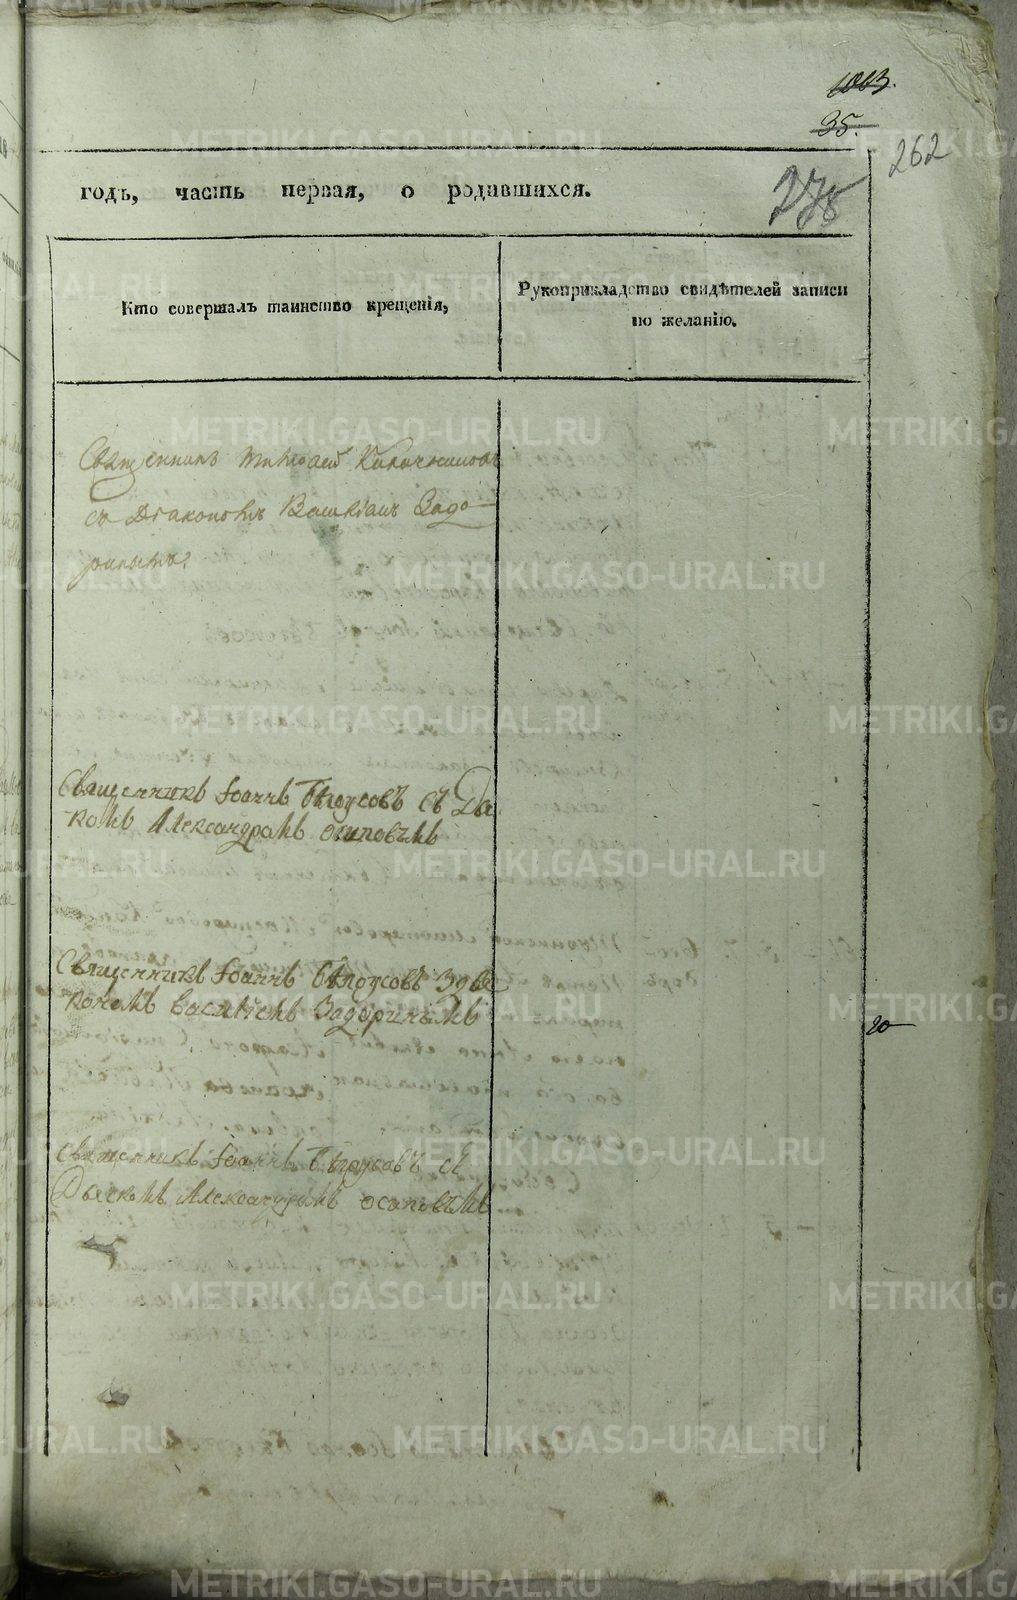 1003.
35.
262
278
годъ, часть первая, о родившихся.
Кто совершалъ таинство крещенія,
Рукоприкладство свидѣтелей записи
по желанію.
Священникъ
съ Діакономъ Задо
ринымъ
Священникъ Іоаннъ Бѣлоусовъ съ Дья
кономъ Александромъ Осиповымъ
Священникъ Іоаннъ Бѣлоусовъ з дья
кономъ Василіемъ Задоринымъ
20
Священникъ Іоаннъ Бѣлоусовъ съ
Дьякономъ Александромъ Осиповымъ
METRIKI.GASO-URAL.RU